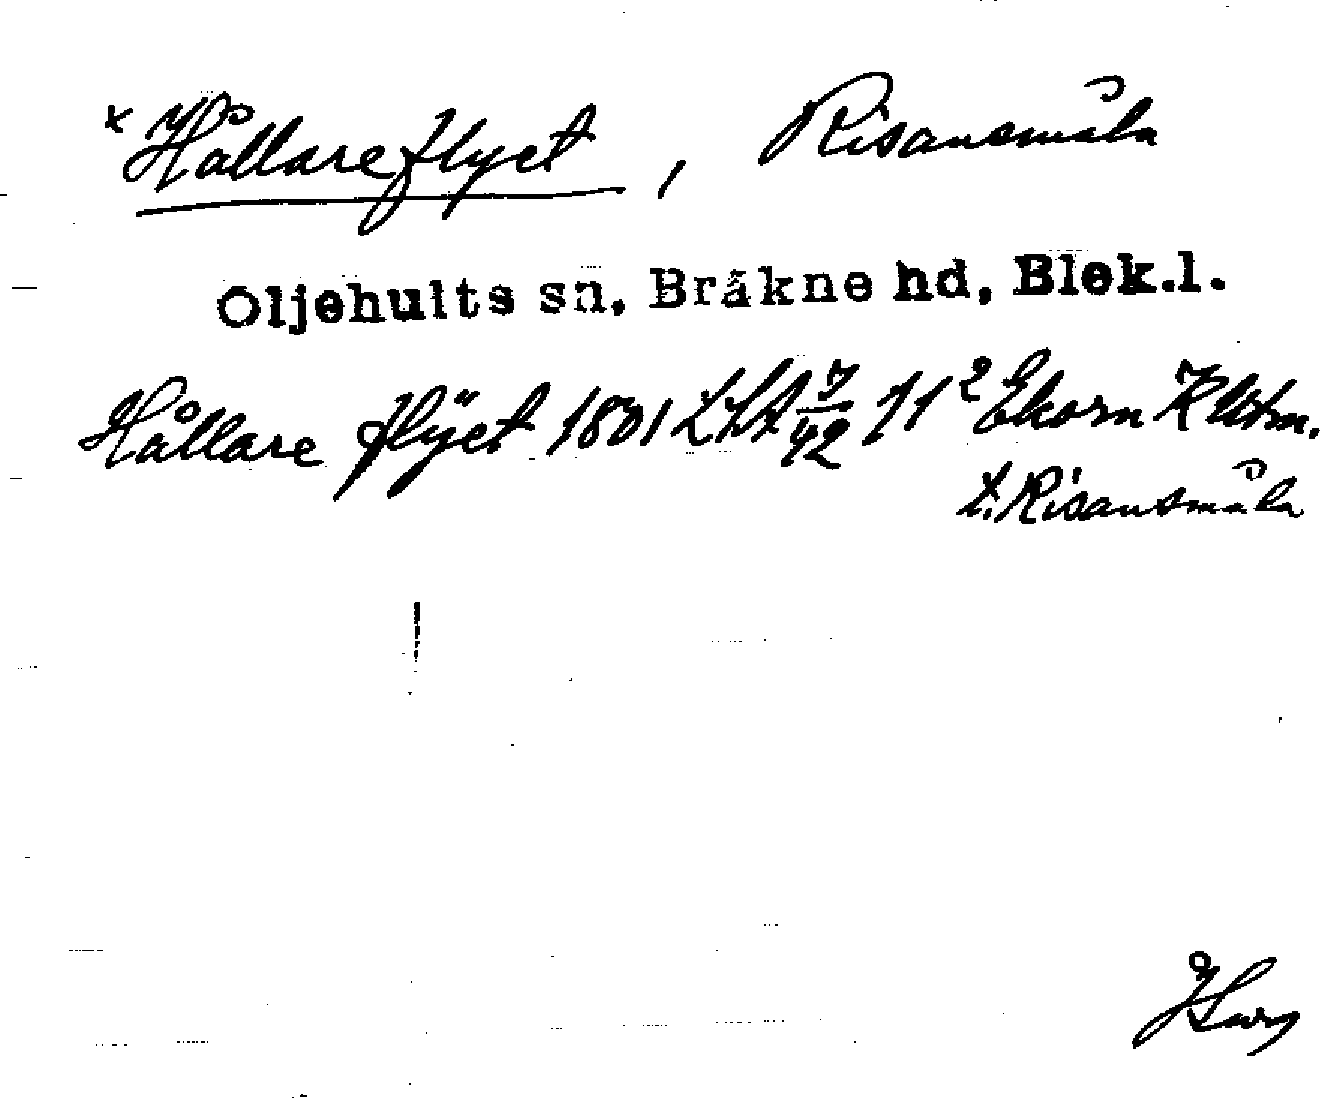 x Hållareflyet, Risansmåla
Öljehults sn, Bräkne hd, Blek.l.
Hållare flÿet 1801 LSA 7/42 11² Ekorn Klstm.
t. Risansmåla